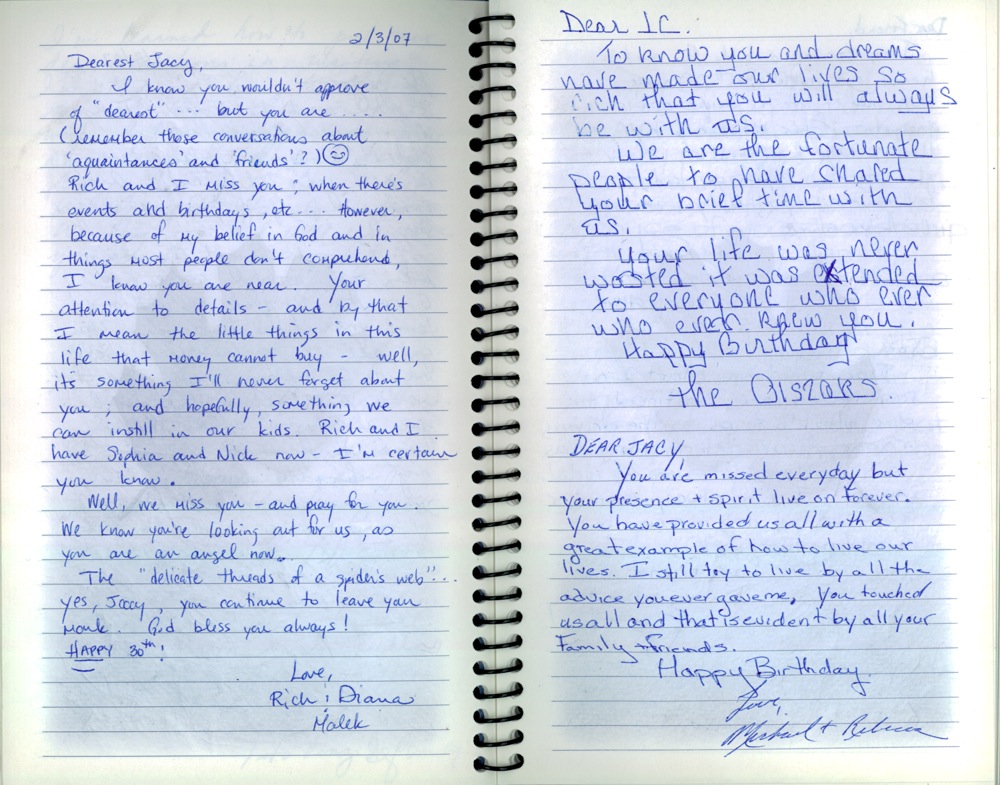 2/3/07
Dearest Jacy,
I know you wouldn't approve
of "dearest" ... but you are ....
(remember those conversations about
'aquaintances and 'friends'?) ☺
Rich and I miss you; when there's
events and birthdays, etc... However,
because of my belief in God and in
things most people don't comprehend,
I know you are near. Your
attention to details - and by that
I mean the little things in this
life that money cannot buy - well,
its something I'll never forget about
you; and hopefully, something we
can instill in our kids. Rich and I
have Sophia and Nick now - I'm certain
you know.
Well, we miss you - and pray for you.
We know you're looking out for us, as
you are an angel now.
The "delicate threads of a spider's web"...
yes, Jacy, you continue to leave your
mark. God bless you always!
HAPPY 30th!
Love,
Rich & Diana
Malek
Dear JC.
To know you and dreams
have made our lives so
rich that you will always
be with us.
We are the fortunate
people to have shared
your brief time with
us.
Your life was never
wasted it was extended
to everyone who ever
who ever knew you.
Happy Birthday
the Olszaks.
DEAR JACY
You are missed everyday but
your presence + spirit live on forever.
You have provided us all with a
great example of how to live our
lives. I still try to live by all the
advice you ever gave me, You touched
us all and that is evident by all your
Family + friends.
Happy Birthday.
Love,
Michael + Rebecca